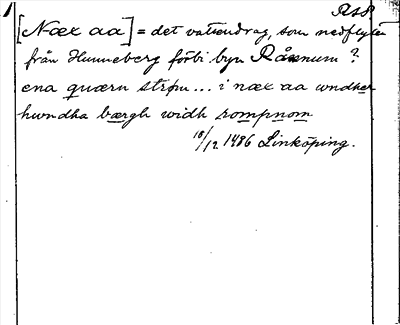 1
RAP
[Næx aa] = det vattendrag, som nedflyter
från Hunneberg förbi byn Rånnum?
ena quærn strøm... i næx aa wndher
hwndha bærgh widh rompnom
18/12 1486 Linköping.